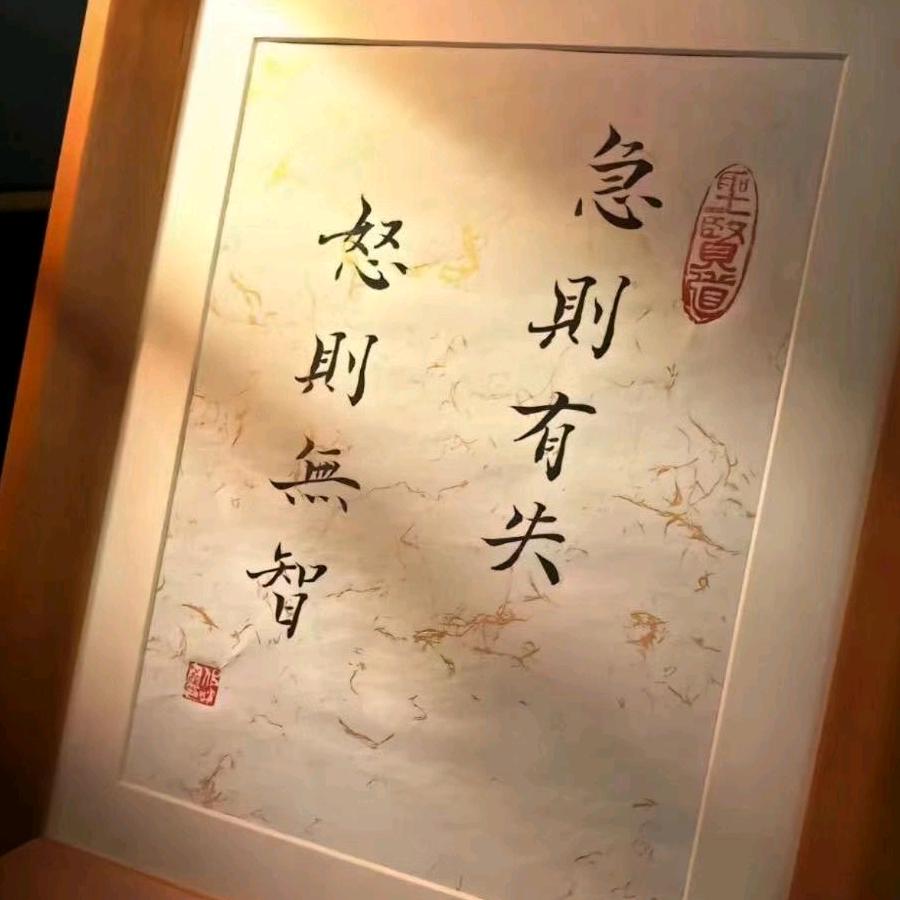 聖賢道
急則有失
怒則無智